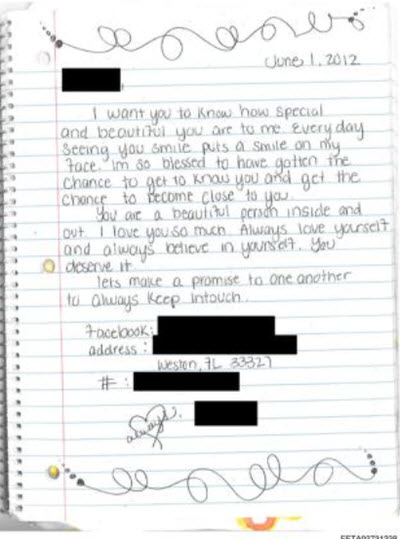 June 1, 2012
I want you to know how special
and beautiful you are to me. Everyday
seeing you smile puts a smile on my
face. Im so blessed to have gotten the
chance to get to know you and get the
chance to become close to you.
You are a beautiful person inside and
out. I love you so much. Always love yourself
and always believe in yourself. You
deserve it.
lets make a promise to one another
to always keep intouch.
Facebook:
address:
Weston, FL 33327
#:
always,